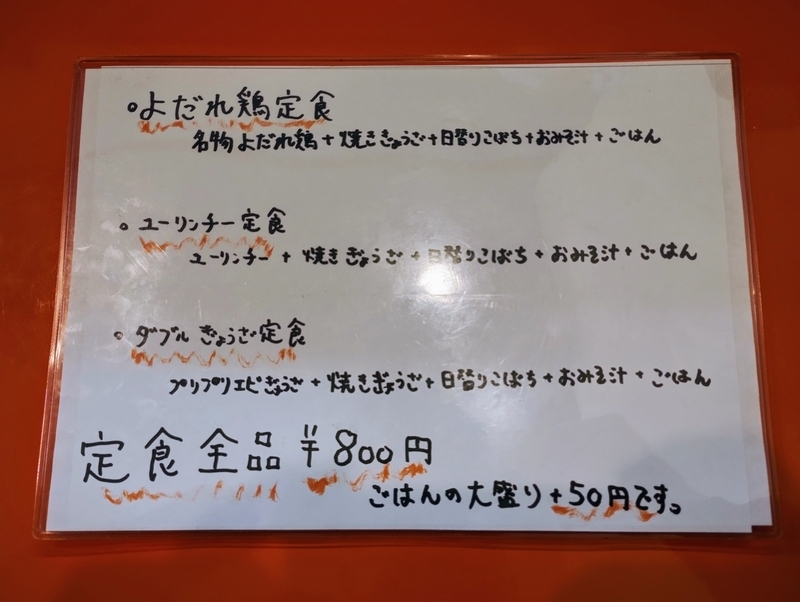 。よだれ鶏定食
名物よだれ鶏+焼ききょうざ+日替りこばち+おみそ汁+ごはん
。ユーリンチー定食
ユーリンチー+焼きぎょうざ+日替りこばち+おみそ汁+ごはん
。ダブルぎょうざ定食
プリプリエビぎょうざ+焼きぎょうざ+日替りこばち+おみそ汁+ごはん
定食全品¥800円
ごはんの大盛り+50円です。